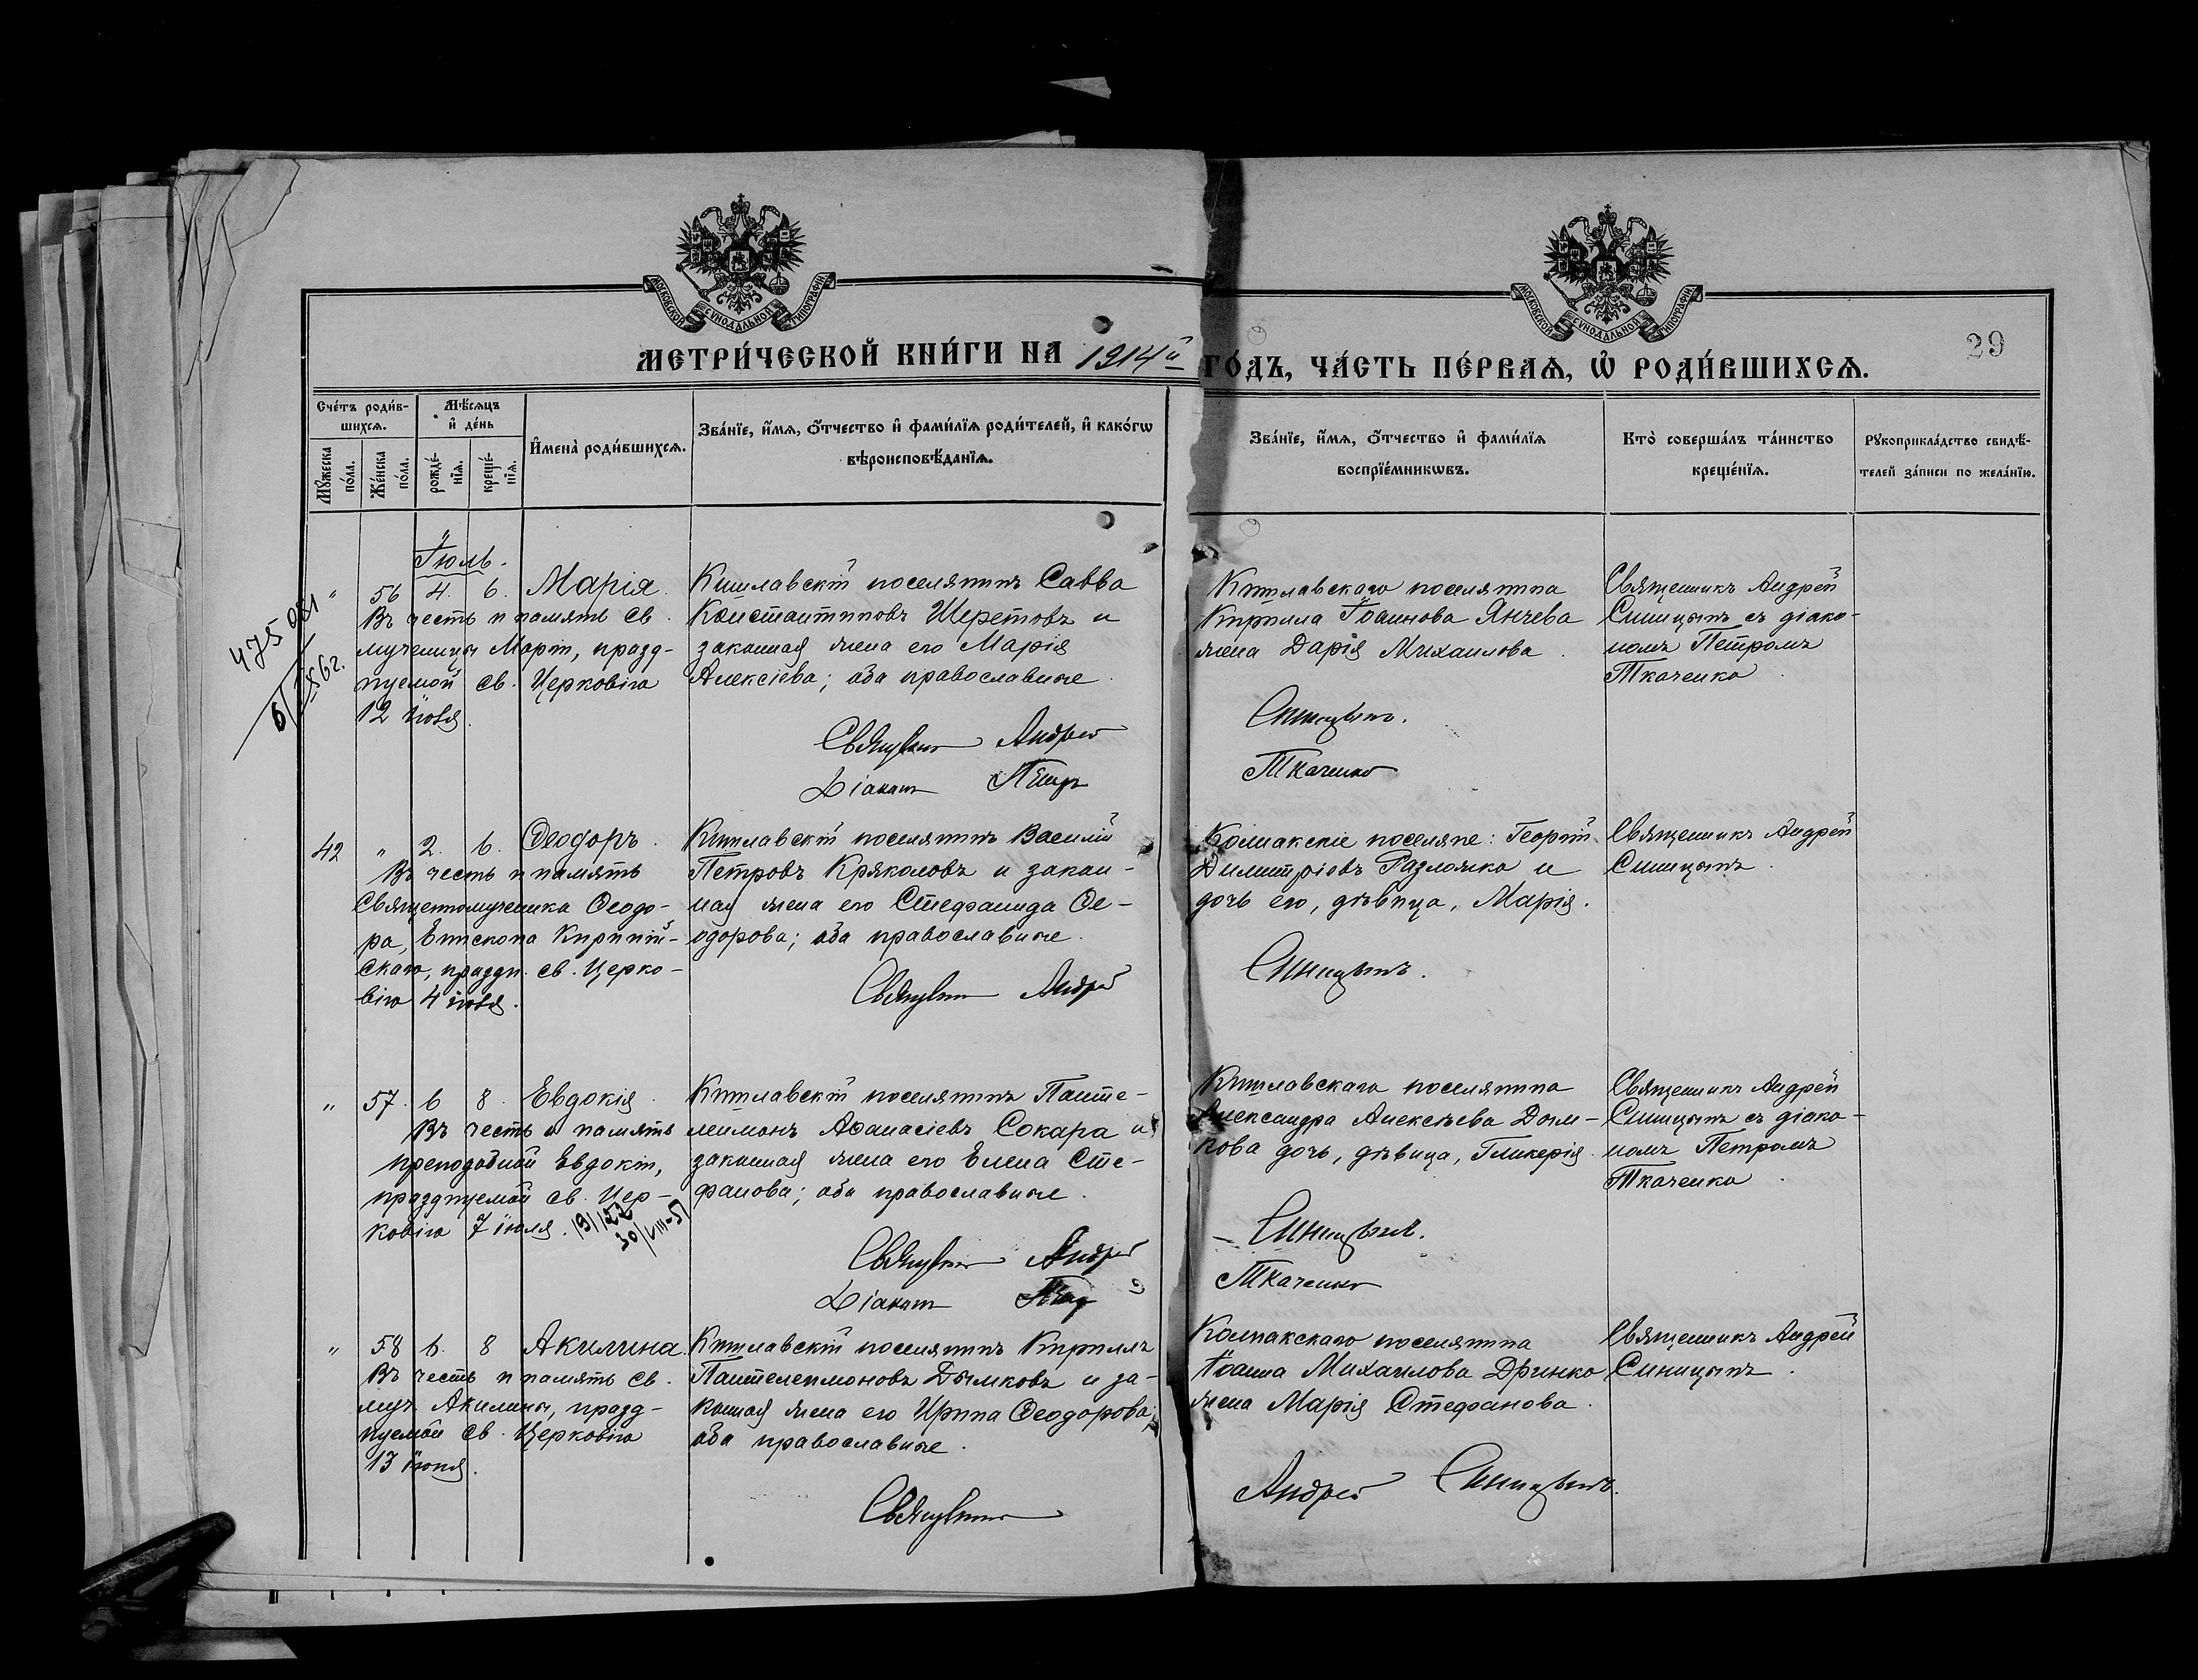 МОСКОВСКОЙ СУНОДАЛЬНОЙ ТИПОГРАФІИ
МОСКОВСКОЙ СУНОДАЛЬНОЙ ТИПОГРАФІИ
29
МЕТРИ́ЧЕСКОЙ КНИ́ГИ НА 1914й ГО́ДЪ, ЧА́СТЬ ПЕ́РВАѦ, Ѽ РОДИ́ВШИХСѦ.
Сче́тъ роди́в-
шихсѧ.
Мꙋ́жеска
по́ла.
Же́нска
по́ла.
Мѣ́сѧцъ
и҆ де́нь
рожде́-
нїѧ.
креще́-
нїѧ.
И҆мена̀ роди́вшихсѧ.
Зва́нїе, и҆́мѧ, ѻ҆́тчество и҆ фами́лїѧ роди́телей, и҆ како́гѡ
вѣроисповѣ́данїѧ.
Зва́нїе, и҆́мѧ, ѻ҆́тчество и҆ фами́лїѧ
воспрїе́мникѡвъ.
Кто̀ соверша́лъ та́инство
креще́нїѧ.
Рꙋкоприкла́дство свидѣ́-
телей за́писи по жела́нїю.
Іюль.
" 56 4. 6. Марія.
Въ честь и память св.
мученицы Маріи, празд-
нуемой св. Церковію
12 іюля.
Кишлавскій поселянинъ Савва
Константиновъ Шеретовъ и
законная жена его Марія
Алексіева; оба православные.
Кишлавскаго поселянина
Кирилла Іоаннова Янчева
жена Дарія Михаилова.
Священникъ Андрей
Синицынъ съ діако-
номъ Петромъ
Ткаченко.
Священникъ Андрей Синицынъ.
Діаконъ Петръ Ткаченко
42 " 2. 6. Ѳеодоръ.
Въ честь и память
Священномученика Ѳеодо-
ра, Епископа Кириній-
скаго, праздн. св. Церко-
вію 4 іюля.
Кишлавскій поселянинъ Василій
Петровъ Кряколовъ и закон-
ная жена его Стефанида Ѳе-
одорова; оба православные.
Колпакскіе поселяне: Георгій
Димитріевъ Разложко и
дочь его, дѣвица, Марія.
Священникъ Андрей
Синицынъ.
Священникъ Андрей Синицынъ.
" 57. 6 8. Евдокія.
Въ честь и память
преподобной Евдокіи,
празднуемой св. Цер-
ковію 7 іюля.
30/VIII-51
Кишлавскій поселянинъ Панте-
леимонъ Аѳанасіевъ Сокара и
законная жена его Елена Сте-
фанова; оба православные.
Кишлавскаго поселянина
Александра Алексѣева Дым-
кова дочь, дѣвица, Гликерія.
Священникъ Андрей
Синицынъ съ діако-
номъ Петромъ
Ткаченко.
Священникъ Андрей Синицынъ.
Діаконъ Петръ Ткаченко
" 58 6. 8 Акилина.
Въ честь и память св.
муч. Акилины, празд-
нуемой св. Церковію
13 іюня.
Кишлавскій поселянинъ Кириллъ
Пантелеимоновъ Дымковъ и за-
конная жена его Ирина Ѳеодорова;
оба православные.
Колпакскаго поселянина
Іоанна Михаилова Дринко
жена Марія Стефанова.
Священникъ Андрей
Синицынъ.
Священникъ Андрей Синицынъ.